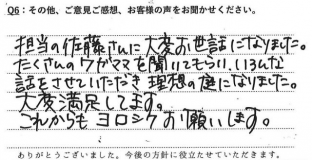 Q6：その他、ご意見ご感想、お客様の声をお聞かせください。
担当の佐藤さんに大変お世話になりました。
たくさんのワガママを聞いてもらい、いろんな
話をさせていただき理想の庭になりました。
大変満足してます。
これからもヨロシクお願いします。
ありがとうございました。今後の方針に役立たせていただきます。